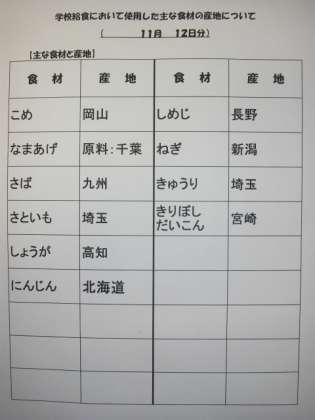 学校給食において使用した主な食材の産地について
( 11月 12日分)
[主な食材と産地]
食 材 産 地 食 材 産 地
こめ 岡山 しめじ 長野
なまあげ 原料:千葉 ねぎ 新潟
さば 九州 きゅうり 埼玉
さといも 埼玉 きりぼしだいこん 宮崎
しょうが 高知
にんじん 北海道